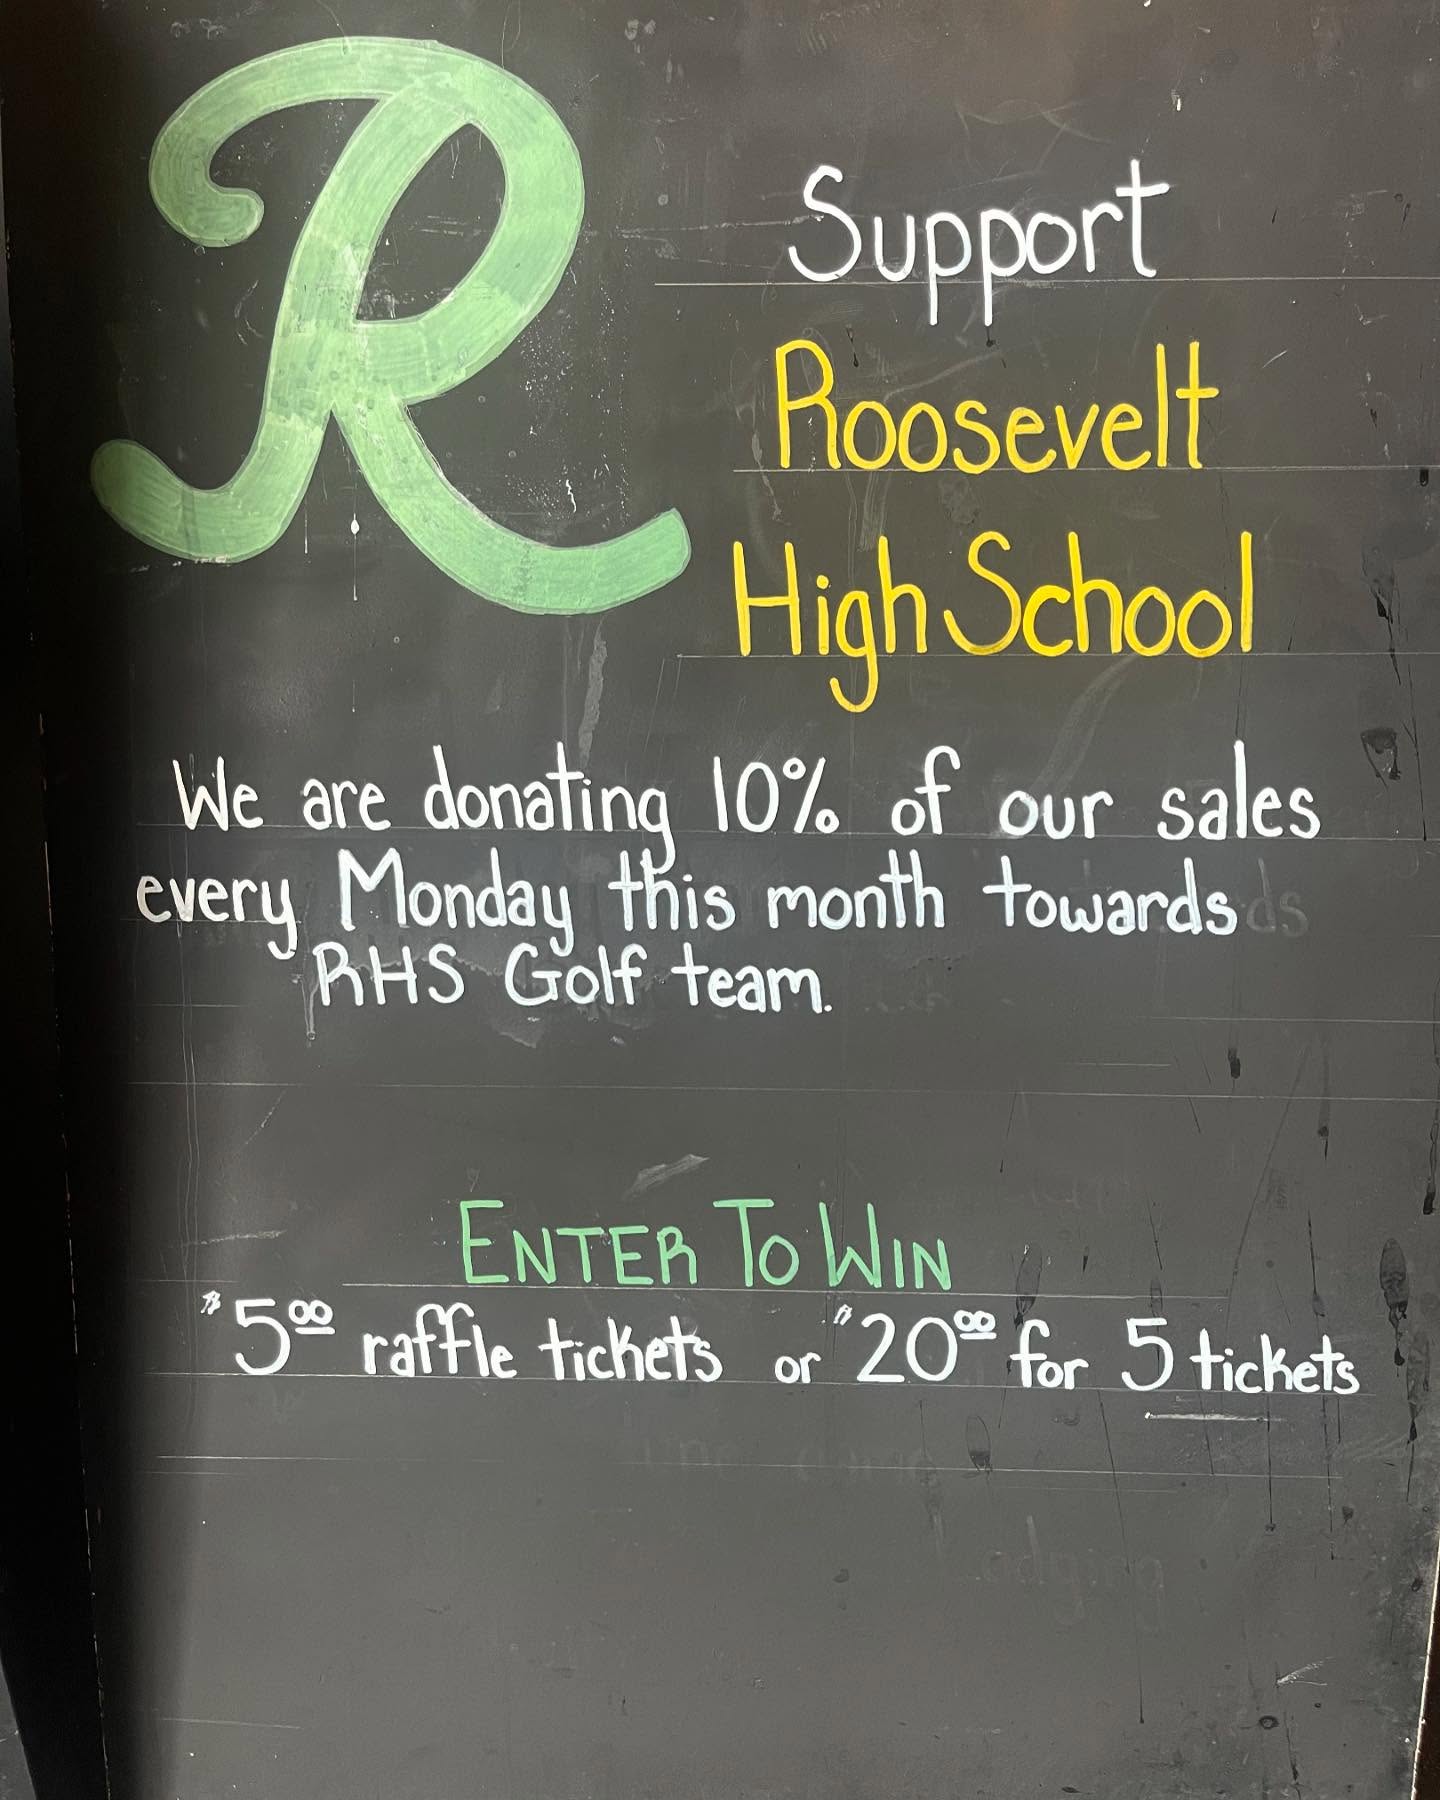 R
Support
Roosevelt
High School
We are donating 10% of our sales
every Monday this month towards
RHS Golf team.
ENTER TO WIN
$5.00 raffle tickets or $20.00 for 5 tickets